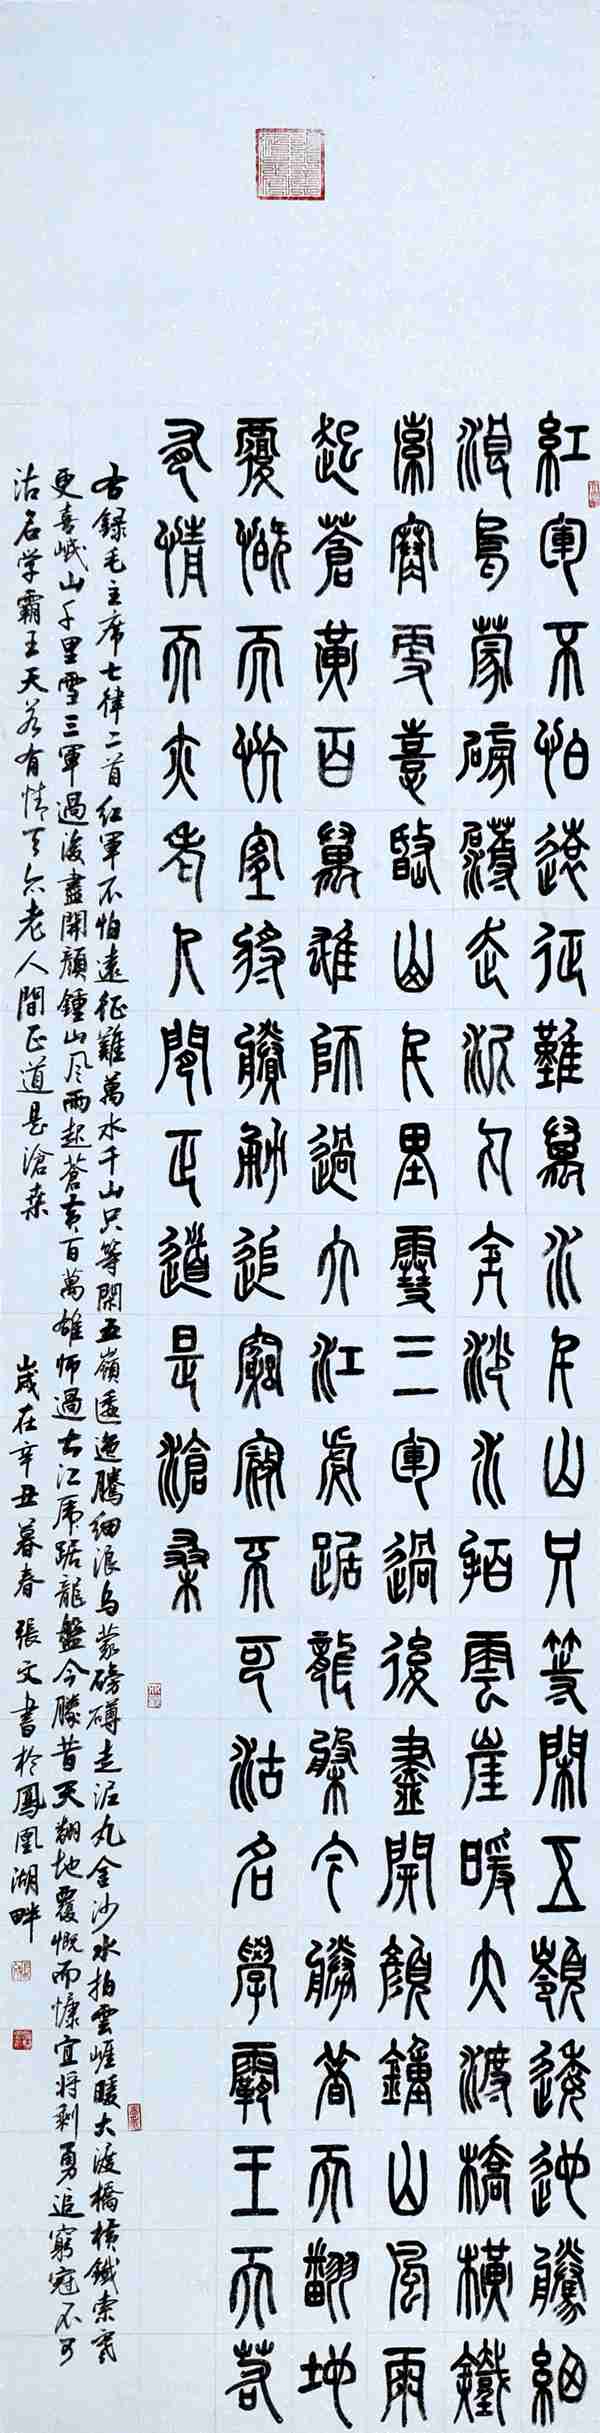 紅軍不怕遠征難萬水千山只等閑五嶺逶迤騰細
浪烏蒙磅礴走泥丸金沙水拍雲崖暖大渡橋橫鐵
索寒更喜岷山千里雪三軍過後盡開顏鍾山風雨
起蒼黃百萬雄師過大江虎踞龍盤今勝昔天翻地
覆慨而慷宜將剩勇追窮寇不可沽名學霸王天若
有情天亦老人間正道是滄桑
右錄毛主席七律二首紅軍不怕遠征難萬水千山只等閑五嶺逶迤騰細浪烏蒙磅礴走泥丸金沙水拍雲崖暖大渡橋橫鐵索寒
更喜岷山千里雪三軍過後盡開顏鍾山風雨起蒼黃百萬雄师過大江虎踞龍盤今勝昔天翻地覆慨而慷宜將剩勇追窮寇不可
沽名学霸王天若有情天亦老人間正道是滄桑 歲在辛丑暮春張文書於鳳凰湖畔